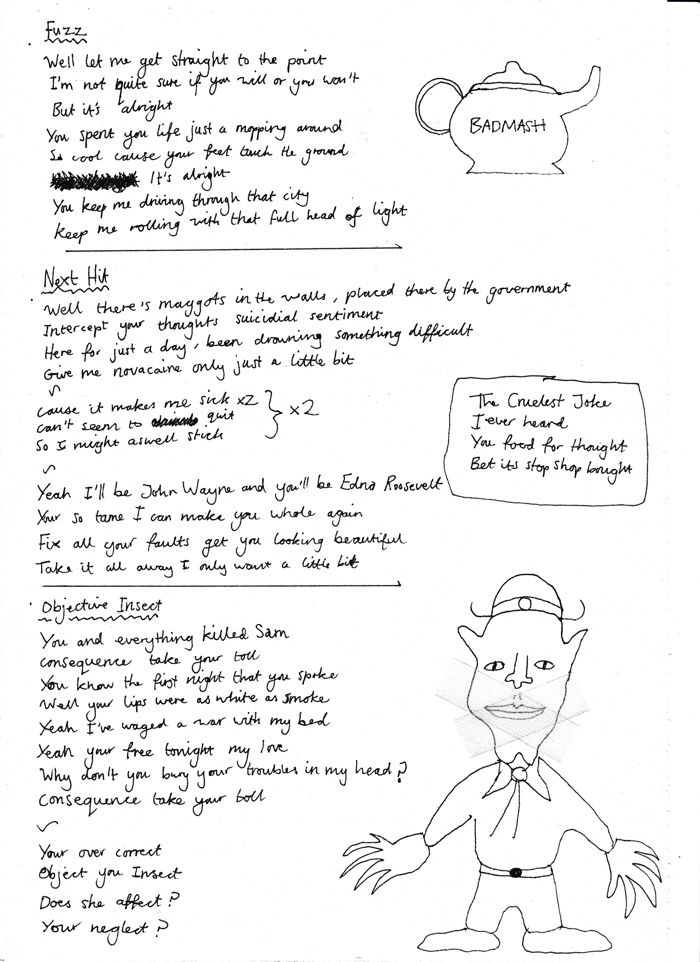 Fuzz
Well let me get straight to the point
I'm not quite sure if you will or you won't
But it's alright
You spent you life just a mopping around
So cool cause your feet touch the ground
It's alright
You keep me driving through that city
Keep me rolling with that full head of light
BADMASH
Next Hit
Well there's maggots in the walls, placed there by the government
Intercept your thoughts suicidial sentiment
Here for just a day, been drowning something difficult
Give me novacaine only just a little bit
Cause it makes me sick x2
Can't seem to quit
So I might aswell stick
x2
Yeah I'll be John Wayne and you'll be Edna Roosevelt
Your so tame I can make you whole again
Fix all your faults get you looking beautiful
Take it all away I only want a little bit
The Cruelest Joke
I ever heard
You food for thought
Bet its stop shop bought
Objective Insect
You and everything killed Sam
Consequence take your toll
You know the first night that you spoke
Well your lips were as white as smoke
Yeah I've waged a war with my bed
Yeah your free tonight my love
Why don't you bury your troubles in my head?
Consequence take your toll
Your over correct
Object you Insect
Does she affect?
Your neglect?